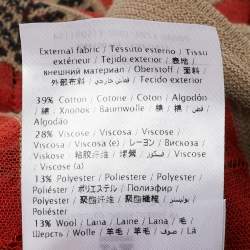 External fabric / Tessuto esterno / Tissu
extérieur / Tejido exterior / 表地 /
внешний материал / Oberstoff / 面料 /
外部布料 / قماش خارجي / Tecido exterior
39% Cotton / Cotone / Coton / Algodón
/ 綿 / Хлопок / Baumwolle / 棉 / 棉 / قطن /
Algodão
28% Viscose / Viscosa / Viscose /
Viscosa / Viscosa (e) / レーヨン / Вискоза /
Viskose / 粘胶纤维 / 嫘縈 / فسكوز / Viscose /
Viscose (a)
13% Polyester / Poliestere / Polyester /
Poliéster / ポリエステル / Полиэфир /
Polyester / 聚酯纤维 / 聚酯纖維 / بوليستر /
Poliéster
13% Wool / Lana / Laine / Lana / 毛 /
Шерсть / Wolle / 羊毛 / 羊毛 / صوف / Lã